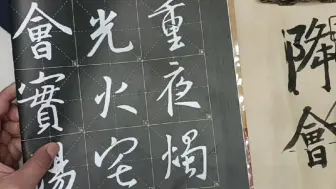 重夜燭
光火宅
會實
降會